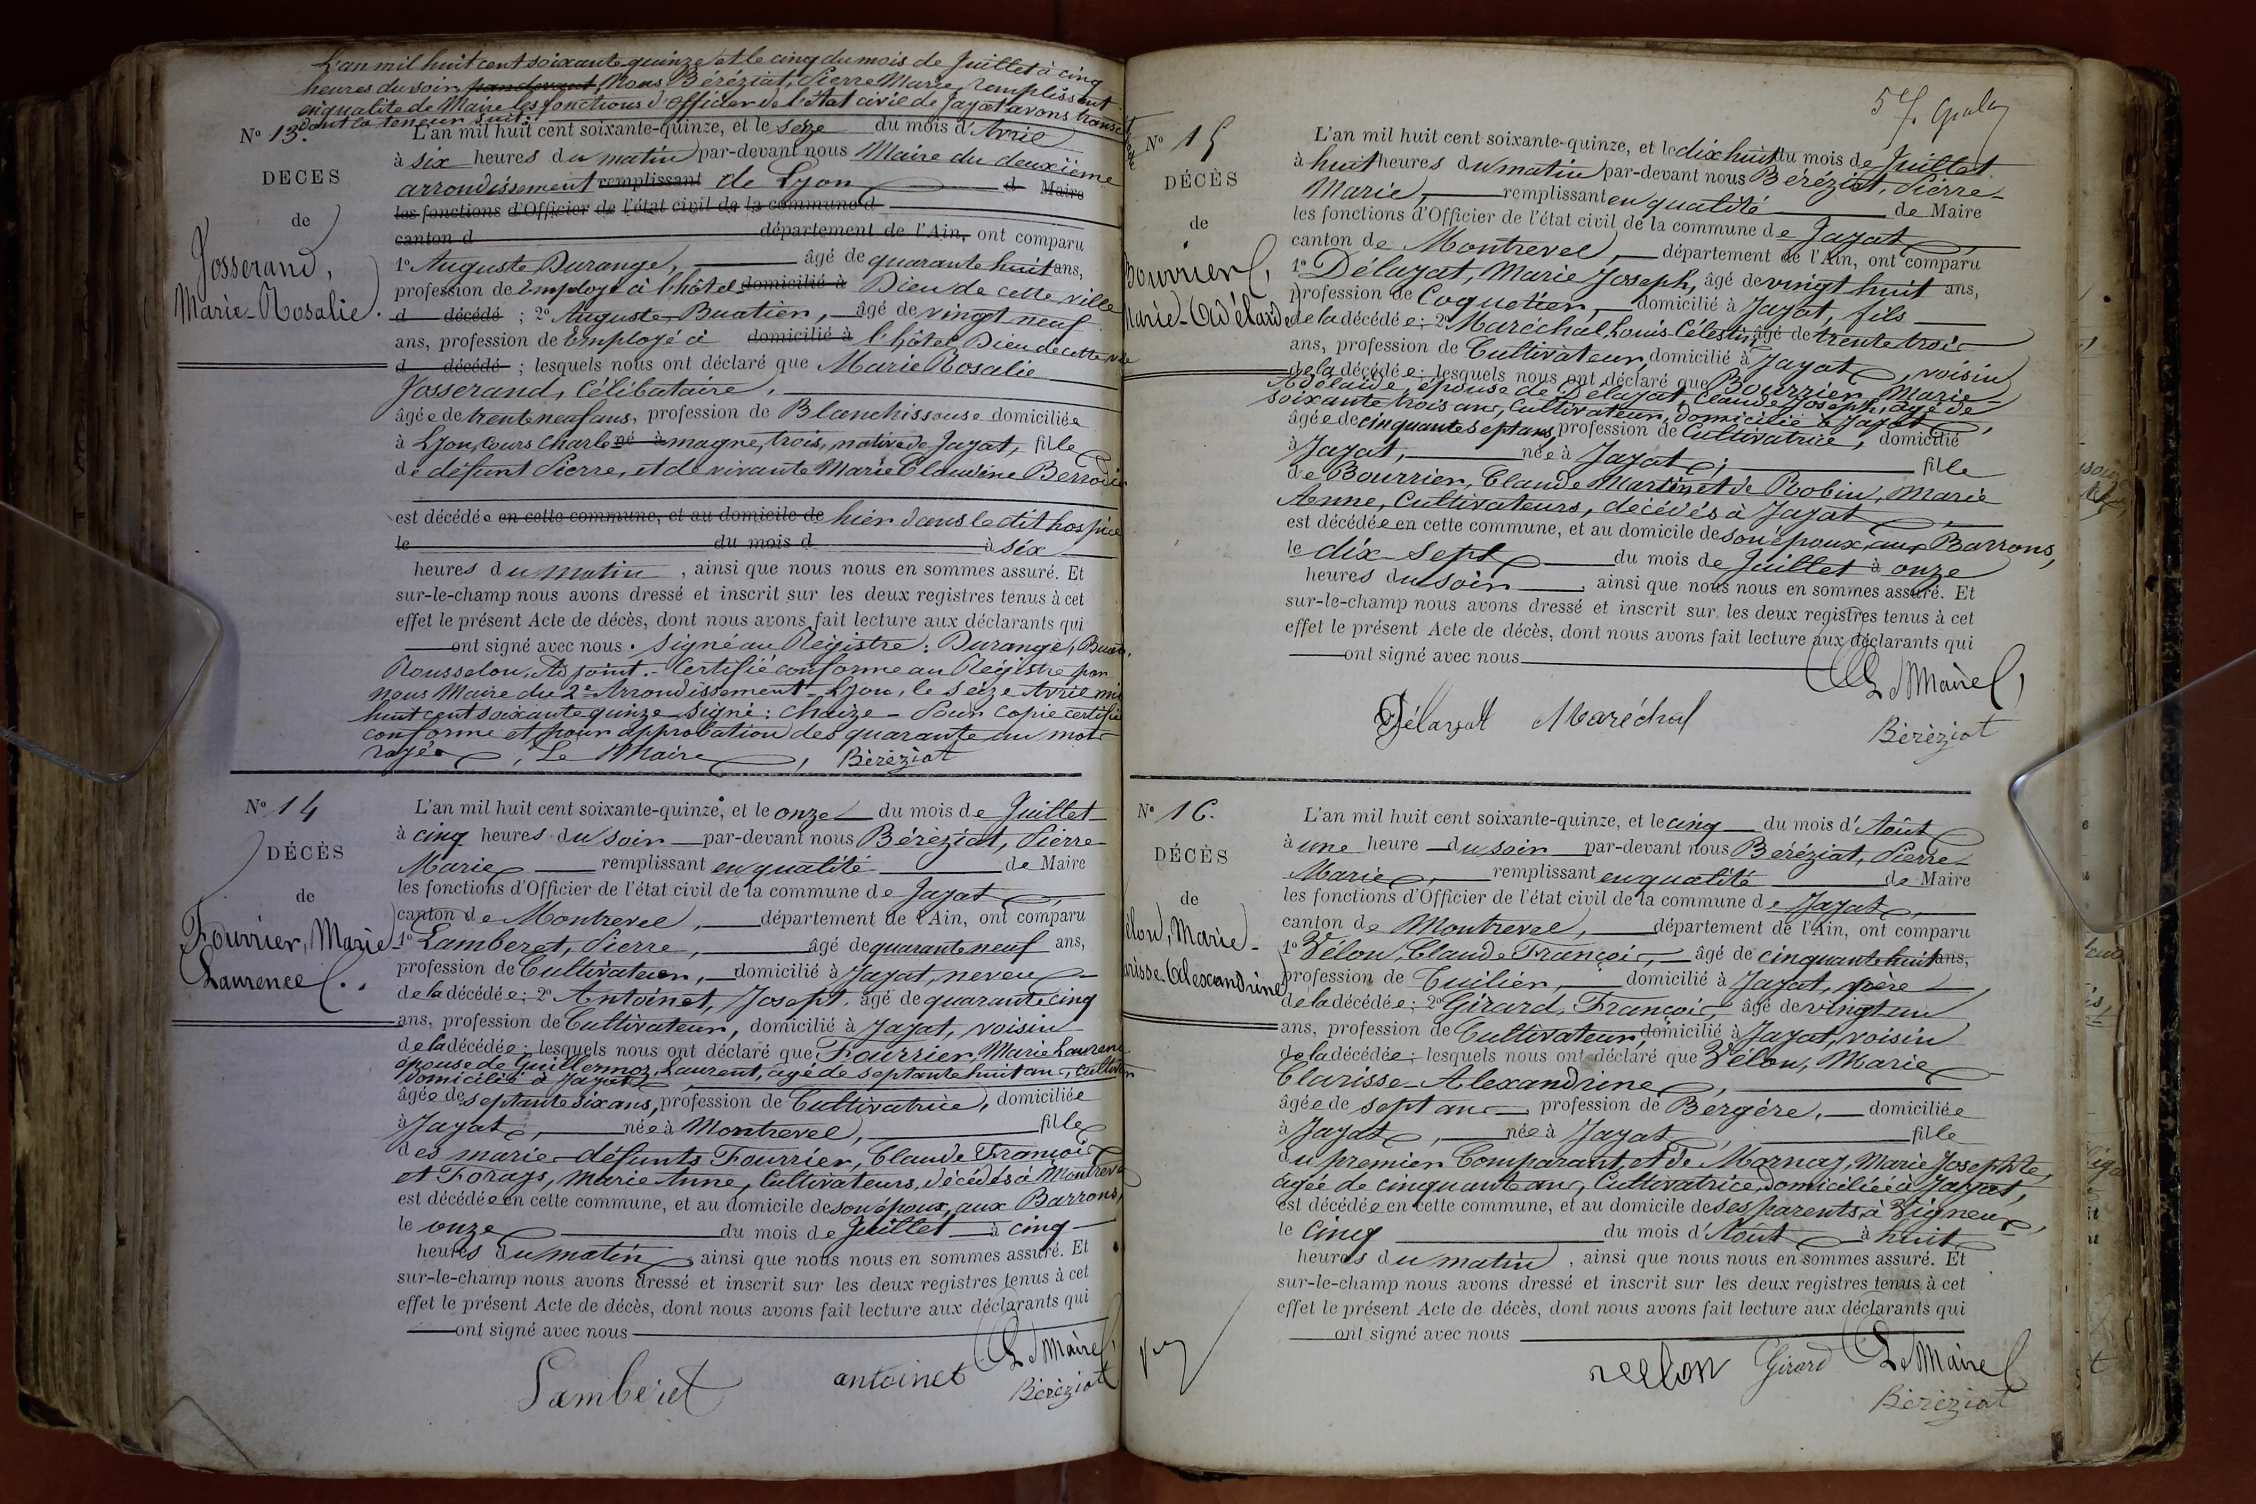 L'an mil huit cent soixante quinze et le cinq du mois de Juillet à cinq
heures du soir par devant Nous Béréziat, Pierre Marie, remplissant
en qualité de Maire les fonctions d'officier de l'état civil de Jayat avons transcrit
dont la teneur suit:
N° 13. L'an mil huit cent soixante-quinze, et le seize du mois d'Avril
à six heures du matin par-devant nous Maire du deuxième
DECES
arrondissement remplissant de Lyon d Maire
les fonctions d'Officier de l'état civil de la commune d
de
canton d département de l'Ain, ont comparu
Josserand,
Marie-Rosalie.
1° Auguste Durange, âgé de quarante huit ans,
profession de Employé à l'hôtel domicilié à Dieu de cette ville
d décédé ; 2° Auguste Buatier, âgé de vingt neuf
ans, profession de Employé à domicilié à l'hôtel Dieu de cette ville
d décédé ; lesquels nous ont déclaré que Marie Rosalie
Josserand, Célibataire,
âgée de trente neuf ans, profession de Blanchisseuse domiciliée
à Lyon, cours Charle né à magne, trois, native de Jayat, fille
de défunt Pierre, et de vivante Marie Claudine Berrodier
est décédée en cette commune, et au domicile de hier dans le dit hospice
le du mois d à six
heures du matin, ainsi que nous nous en sommes assuré. Et
sur-le-champ nous avons dressé et inscrit sur les deux registres tenus à cet
effet le présent Acte de décès, dont nous avons fait lecture aux déclarants qui
ont signé avec nous. Signé au Régistre: Durange, Buatier,
Rousselon, Adjoint. - Certifié conforme au Régistre par
nous Maire du 2e Arrondissement - Lyon, le seize Avril mil
huit cent soixante quinze - Signé: Chaize - Pour copie certifiée
conforme et pour approbation des quarante un mots
rayés, Le Maire, Béréziat
N° 14 L'an mil huit cent soixante-quinze, et le onze du mois de Juillet
à cinq heures du soir par-devant nous Béréziat, Pierre
DÉCÈS
Marie remplissant en qualité de Maire
les fonctions d'Officier de l'état civil de la commune de Jayat
de
canton de Montrevel, département de l'Ain, ont comparu
Fourrier, Marie
Laurence.
1° Lamberet, Pierre, âgé de quarante neuf ans,
profession de Cultivateur, domicilié à Jayat, neveu
de la décédée; 2° Antoinet, Joseph, âgé de quarante cinq
ans, profession de Cultivateur, domicilié à Jayat, voisin
de la décédée; lesquels nous ont déclaré que Fourrier, Marie Laurence
épouse de Guillermoz, Laurent, agé de septante huit ans, Cultivateur
domicilié à Jayat
âgée de septante six ans, profession de Cultivatrice, domiciliée
à Jayat, née à Montrevel, fille
des mariés défunts Fourrier, Claude François
et Forays, Marie Anne, Cultivateurs, décédés à Montrevel
est décédée en cette commune, et au domicile de son époux, aux Barrons,
le onze du mois de Juillet à cinq
heures du matin, ainsi que nous nous en sommes assuré. Et
sur-le-champ nous avons dressé et inscrit sur les deux registres tenus à cet
effet le présent Acte de décès, dont nous avons fait lecture aux déclarants qui
ont signé avec nous
Lamberet antoinet Le Maire,
Béréziat
N° 15 L'an mil huit cent soixante-quinze, et le dix huit du mois de Juillet
à huit heures du matin par-devant nous Béréziat, Pierre-
DÉCÈS
Marie, remplissant en qualité de Maire
les fonctions d'Officier de l'état civil de la commune de Jayat
de
canton de Montrevel, département de l'Ain, ont comparu
Bourrier,
Marie-Adélaide
1° Délayat, Marie Joseph, âgé de vingt huit ans,
profession de Coquetier, domicilié à Jayat, fils
de la décédée; 2° Maréchal Louis Célestin, âgé de trente trois
ans, profession de Cultivateur, domicilié à Jayat, voisin
de la décédée; lesquels nous ont déclaré que Bourrier, Marie
Adélaïde, épouse de Délayat, Claude Joseph, agé de
soixante trois ans, Cultivateur, domicilié à Jayat,
âgée de cinquante sept ans, profession de Cultivatrice, domicilié
à Jayat, née à Jayat; fille
de Bourrier, Claude Martin et de Robin, Marie
Anne, Cultivateurs, décédés à Jayat,
est décédée en cette commune, et au domicile de son époux, aux Barrons,
le dix sept du mois de Juillet à onze
heures du soir, ainsi que nous nous en sommes assuré. Et
sur-le-champ nous avons dressé et inscrit sur les deux registres tenus à cet
effet le présent Acte de décès, dont nous avons fait lecture aux déclarants qui
ont signé avec nous
Le Maire,
Délayat Maréchal
Béréziat
N° 16. L'an mil huit cent soixante-quinze, et le cinq du mois d'Août
à une heure du soir par-devant nous Béréziat, Pierre-
DÉCÈS
Marie, remplissant en qualité de Maire
les fonctions d'Officier de l'état civil de la commune de Jayat,
de
canton de Montrevel, département de l'Ain, ont comparu
élon, Marie-
arisse Alexandrine
1° Vélon, Claude François, âgé de cinquante huit ans,
profession de Tuilier, domicilié à Jayat, père
de la décédée; 2° Girard, François, âgé de vingt un
ans, profession de Cultivateur, domicilié à Jayat, voisin
de la décédée; lesquels nous ont déclaré que Vélon, Marie
Clarisse-Alexandrine,
âgée de sept ans, profession de Bergére, domiciliée
à Jayat, née à Jayat, fille
du premier Comparant, et de Mornay, Marie Josephte,
agée de cinquante ans, Cultivatrice, domiciliée à Jayat,
est décédée en cette commune, et au domicile de ses parents, à Vigneux,
le cinq du mois d'Août à huit
heures du matin, ainsi que nous nous en sommes assuré. Et
sur-le-champ nous avons dressé et inscrit sur les deux registres tenus à cet
effet le présent Acte de décès, dont nous avons fait lecture aux déclarants qui
ont signé avec nous
velon Girard Le Maire
Béréziat